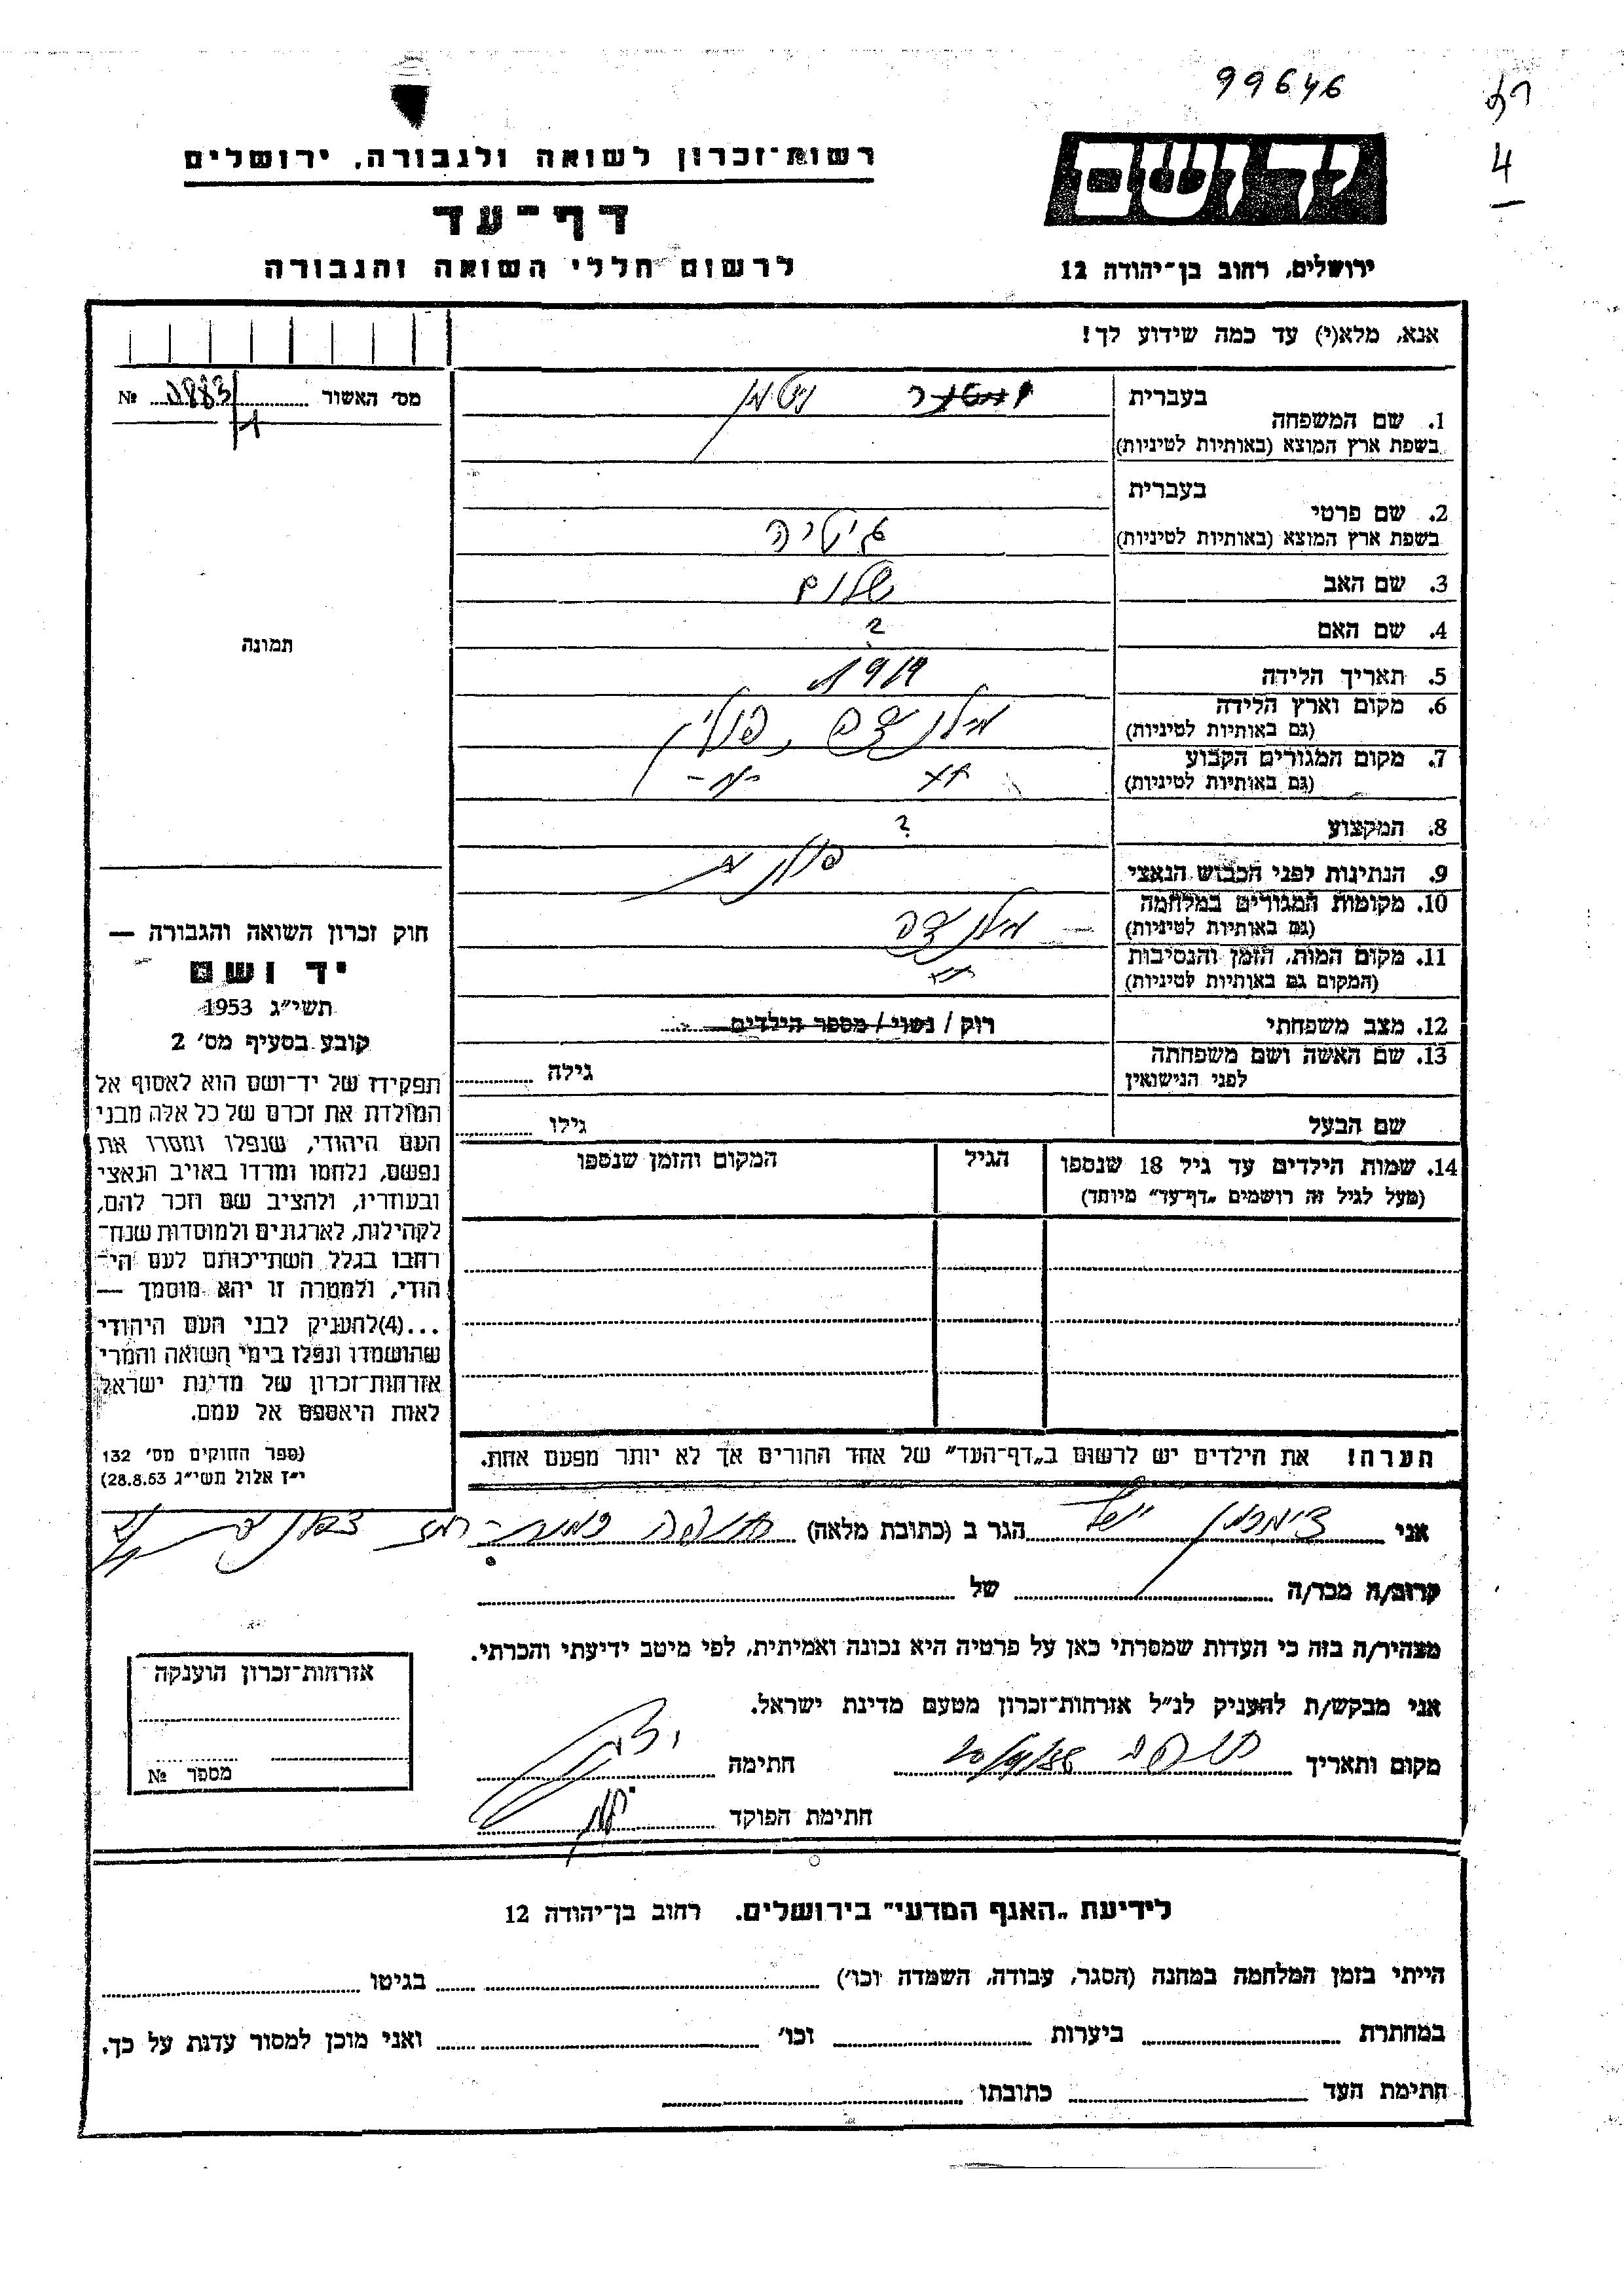 99646
4
יד ושם
רשות־זכרון לשואה ולגבורה, ירושלים
דף־עד
ירושלים, רחוב בן־יהודה 12
לרשום חללי השואה והגבורה
אנא, מלא(י) עד כמה שידוע לך!
מס׳ האשור № 3883/1
1. שם המשפחה
בעברית
בשפת ארץ המוצא (באותיות לטיניות)
2. שם פרטי
בעברית
בשפת ארץ המוצא (באותיות לטיניות)
גיטיה
3. שם האב שלום
4. שם האם ?
5. תאריך הלידה 1919
6. מקום וארץ הלידה
(גם באותיות לטיניות)
פולין
7. מקום המגורים הקבוע
(גם באותיות לטיניות)
8. המקצוע ?
9. הנתינות לפני הכבוש הנאצי
10. מקומות המגורים במלחמה
(גם באותיות לטיניות)
11. מקום המות, הזמן והנסיבות
(המקום גם באותיות לטיניות)
12. מצב משפחתי
רוק / נשוי / מספר הילדים
13. שם האשה ושם משפחתה
לפני הנישואין
גילה
שם הבעל
גילו
14. שמות הילדים עד גיל 18 שנספו
(מעל לגיל זה רושמים „דף־עד״ מיוחד)
הגיל
המקום והזמן שנספו
תמונה
חוק זכרון השואה והגבורה —
יד ושם
תשי״ג 1953
קובע בסעיף מס׳ 2
תפקידו של יד־ושם הוא לאסוף אל
המולדת את זכרם של כל אלה מבני
העם היהודי, שנפלו ומסרו את
נפשם, נלחמו ומרדו באויב הנאצי
ובעוזריו, ולהציב שם וזכר להם,
לקהילות, לארגונים ולמוסדות שנח־
רבו בגלל השתייכותם לעם הי־
הודי, ולמטרה זו יהא מוסמך —
...(4)להעניק לבני העם היהודי
שהושמדו ונפלו בימי השואה והמרי
אזרחות־זכרון של מדינת ישראל
לאות היאספם אל עמם.
(ספר החוקים מס׳ 132
י״ז אלול תשי״ג 28.8.53)
הערה! את הילדים יש לרשום ב„דף־העד״ של אחד ההורים אך לא יותר מפעם אחת.
אני הגר ב (כתובת מלאה)
קרוב/ה מכר/ה של
מצהיר/ה בזה כי העדות שמסרתי כאן על פרטיה היא נכונה ואמיתית, לפי מיטב ידיעתי והכרתי.
אני מבקש/ת להעניק לנ״ל אזרחות־זכרון מטעם מדינת ישראל.
מקום ותאריך חתימה
חתימת הפוקד
אזרחות־זכרון הוענקה
מספר №
לידיעת „האגף המדעי״ בירושלים. רחוב בן־יהודה 12
הייתי בזמן המלחמה במחנה (הסגר, עבודה, השמדה וכו׳) בגיטו
במחתרת ביערות וכו׳ ואני מוכן למסור עדות על כך.
חתימת העד כתובתו